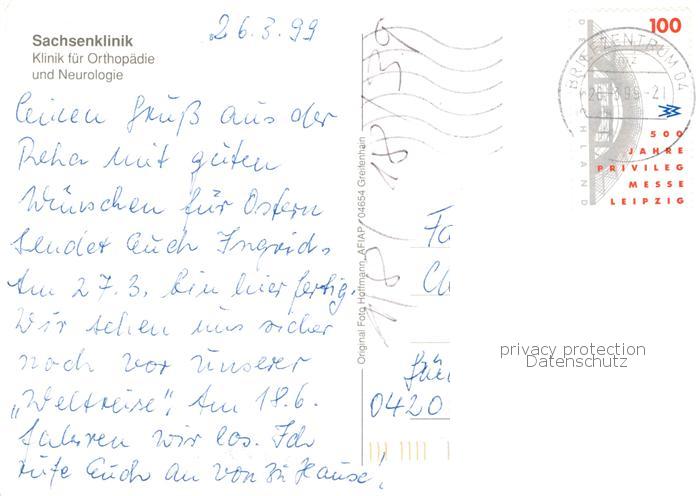 26.3.99
Sachsenklinik
Klinik für Orthopädie
und Neurologie
Einen Gruß aus der
Reha mit guten
Wünschen für Ostern
sendet Euch Ingrid.
Am 27.3. bin hier fertig.
Wir sehen uns sicher
noch vor unserer
„Weltreise", Am 18.6.
fahren wir los. Ich
rufe Euch an von zu Hause!
Original Foto Hoffmann, AFIAP / 04654 Greifenhain
118/ 18 / 379
100
DEUTSCHLAND
500
JAHRE
PRIVILEG
MESSE
LEIPZIG
BRIEFZENTRUM 04
26.-3.99-21
Fa
0420
privacy protection
Datenschutz